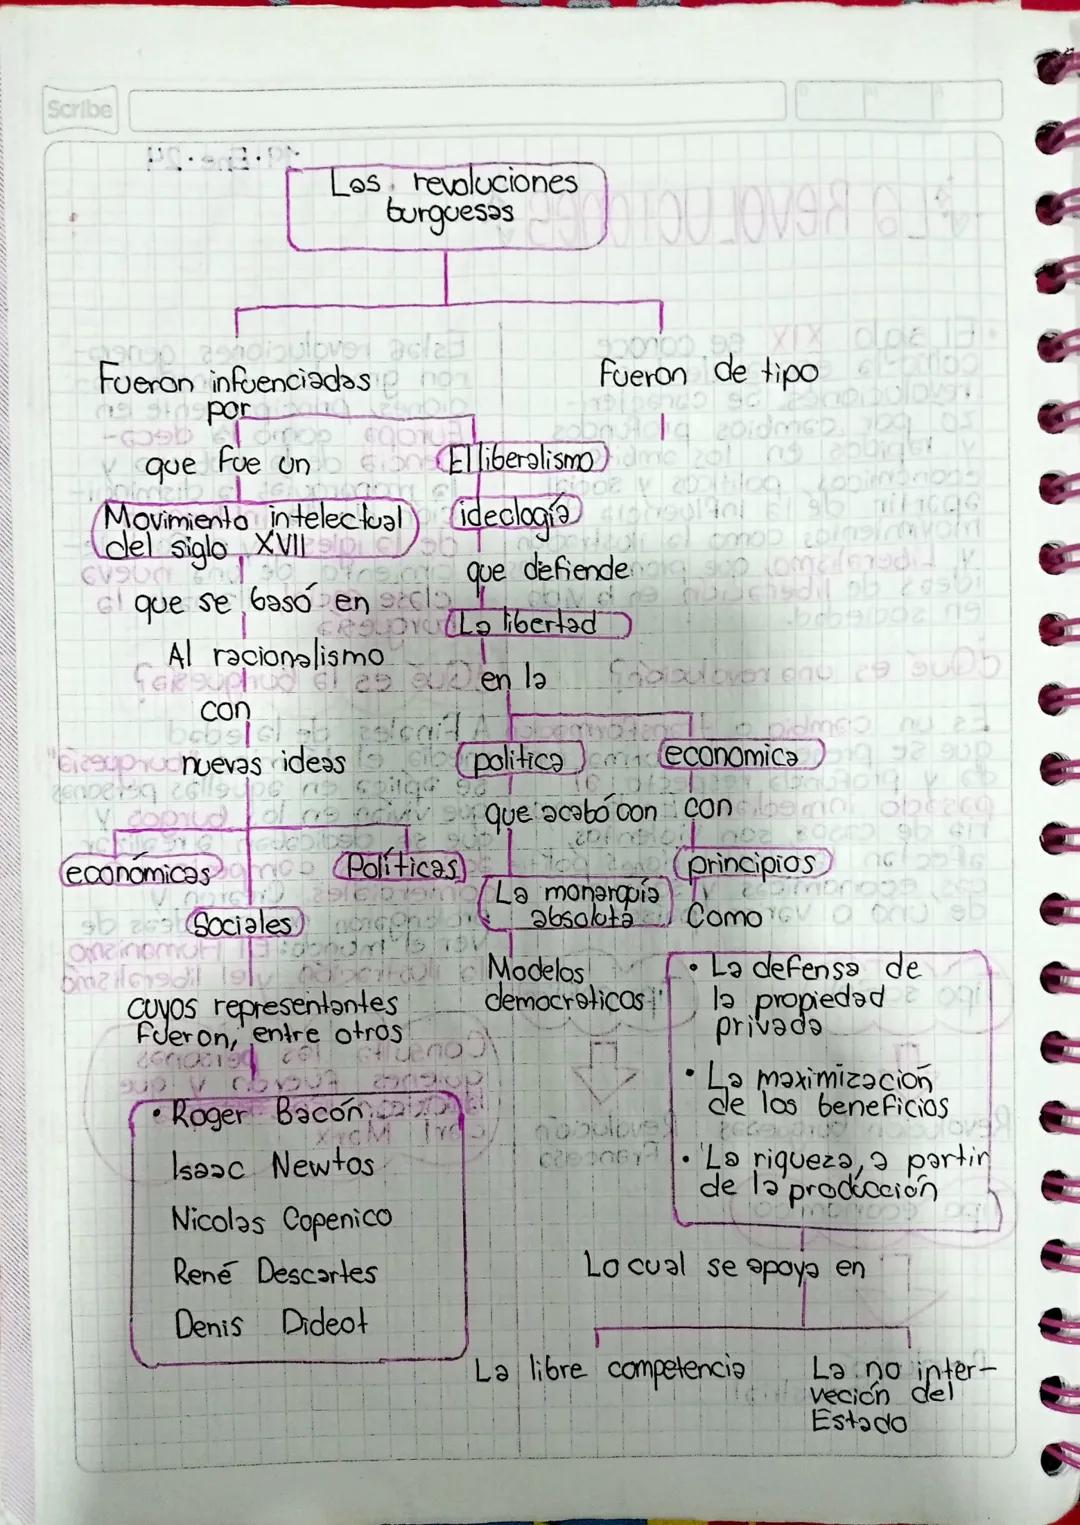 Scribe
Las revoluciones
burguesas
Fueron infuenciadas
por
Fueron de tipo
que fue un
El liberalismo
Movimiento intelectual
del siglo XVII
ideología
que defiende
que se basó en
La libertad
Al racionalismo
en la
con
nuevas ideas
politica
economica
que acabó con
con
económicas
Políticas
Sociales
La monarquía
absoluta
principios
Como
Modelos
democraticos
• La defensa de
la propiedad
privada
• La maximización
de los beneficios
• La riqueza, a partir
de la producción
cuyos representantes
fueron, entre otros
• Roger Bacon
Isaac Newtos
Nicolas Copenico
René Descartes
Denis Dideot
Lo cual se apoya en
La libre competencia
La no inter-
veción del
Estado